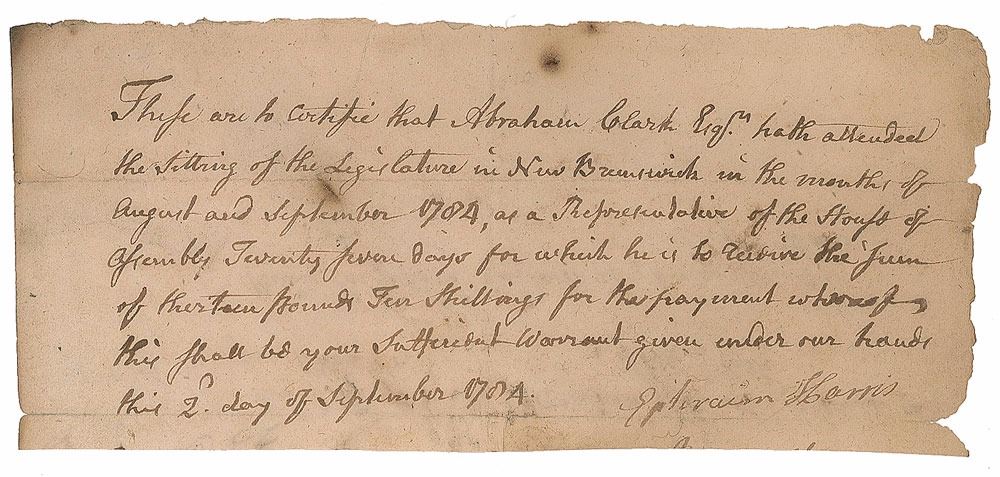 These are to Certifie that Abraham Clark Esqr. hath attended
the Sitting of the Legislature in New Brunswick in the months of
August and September 1784, as a Representative of the House of
Assembly Twenty Seven days for which he is to receive the Sum
of therteen Pounds Ten Shillings for the payment whereof
this shall be your Sufficient Warrant given under our hands
this 2d. day of September 1784.
Ephraim Harris